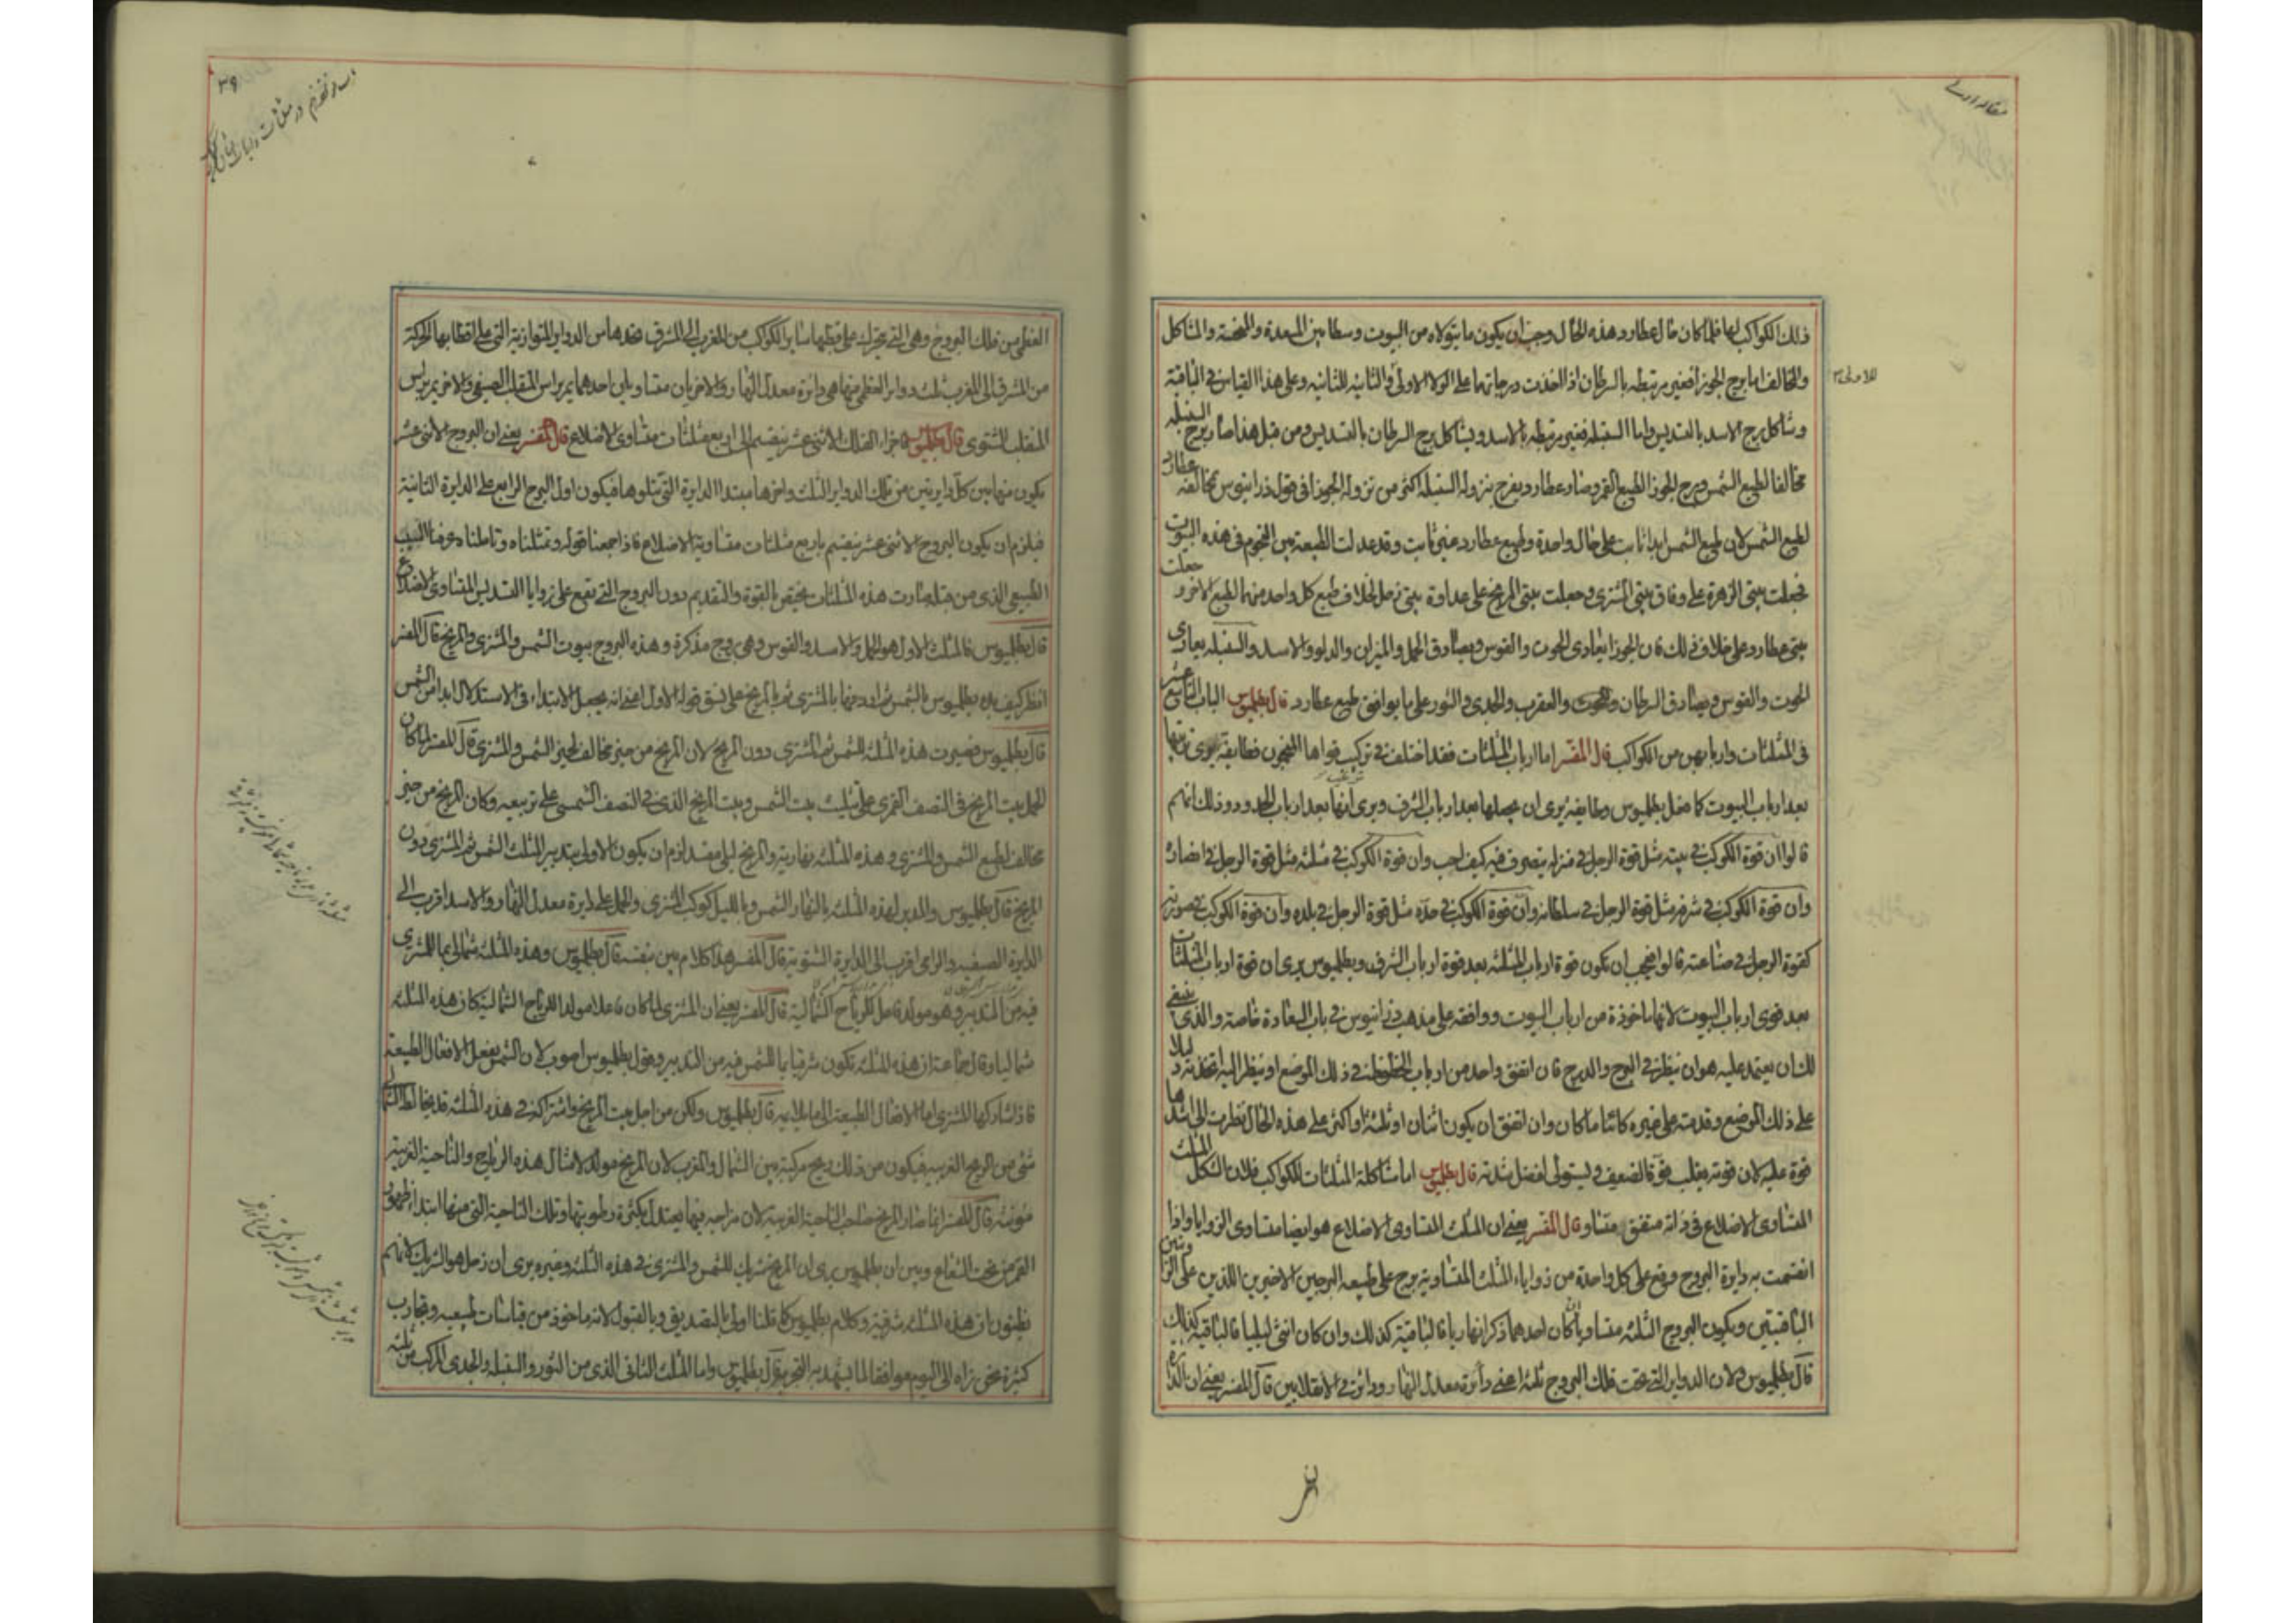 ذلك الكواكب لها فلما كان حال عطارد هذه الحال وجب ان يكون ما يتولاه من البيوت وسطا بين المسعدة والمنحسة والمشاكل
والمخالف اما برج الجوزا فغير مرتبطه بالسرطان اذا اخذت درجاتهما على الولا الاولى والثانيه للثانيه وعلى هذا القياس في الباقية
للاولى
وشاكل برج الاسد بالتسديس واما السنبله فغير مرتبطه بالاسد ويشاكل برج السرطان بالتسديس ومن قبل هذا صار برج السنبله
مخالفا لطبع الشمس وبرج الجوزا لطبع القمر وصار عطارد يفرح بنزوله السنبله اكثر من نزوله الجوزا في قول ذرانيوس مخالفه عطارد
لطبع الشمس لان طبع الشمس ابدا ثابت على حال واحدة وطبع عطارد غير ثابت وقد عدلت الطبيعة بين النجوم في هذه البيوت
فجعلت بيتى الزهرة على وفاق بيتى المشترى وجعلت بيتى المريخ على عداوة بيتى زحل لخلاف طبع كل واحد منهما لطبع الاخر و جعلت
بيتى عطارد على خلاف ذلك فان الجوزا يعادى الحوت والقوس ويصادق الحمل والميزان والدلو والاسد والسنبله يعادى
الحوت والقوس ويصادق السرطان والعقرب والجدى والثور على ما يوافق طبع عطارد قال بطلميوس الباب التاسع عشر
فى المثلثات واربابهن من الكواكب قال المفسر اما ارباب المثلثات فقد اختلف في تركيب قواها المنجمون فطايفة يرى ترتيبها
بعد ارباب البيوت كما فعل بطلميوس وطايفه يرى ان يجعلها بعد ارباب الشرف ويرى انها بعد ارباب الحدود وذلك انهم
قالوا ان قوة الكوكب في بيته مثل قوة الرجل في منزله يتصرف فيه كيف احب وان قوة الكوكب في مثلثه مثل قوة الرجل في انصاره
وان قوة الكوكب في شرفه مثل قوة الرجل في سلطانه وان قوة الكوكب في حده مثل قوة الرجل في بلده وان قوة الكوكب في صورته
كقوة الرجل في صناعته قالوا فيجب ان تكون قوة ارباب المثلثه بعد قوة ارباب الشرف وبطلميوس يرى ان قوة ارباب المثلثات
بعد قوى ارباب البيوت لانها ماخوذة من ارباب البيوت ووافقه على مذهب ذرانيوس في باب السعادة خاصة والذى ينبغى
لك ان يعتمد عليه هو ان ينظر في البرج والدرج فان اتفق واحد من ارباب الحظوظ في ذلك الموضع او ينظر اليه اتخذته دليلا
على ذلك الموضع وقدمته على غيره كائنا ما كان وان اتفق ان يكون اثنان او ثلثة او اكثر على هذه الحال نظرت الى اشدها
قوة عليه لان قوته يغلب قوة الضعيف ويستولى افضل شدته قال بطلميوس اما مشاكلة المثلثات للكواكب فلان الشكل المثلث
المتساوى الاضلاع في ذاته متفق متساو قال المفسر يعنى ان المثلث المتساوى الاضلاع هو ايضا متساوى الزوايا واذا
انقسمت به دايرة البروج وقع على كل واحدة من زواياه المثلث المتساوية برج على طبيعه البرجين الاخيرين اللذين على الزاويتين
الباقيتين ويكون البروج الثلثه متساويا ان كان احدهما ذكرا نهاريا فالباقية كذلك وان كان انثى ليليا فالباقيه كذلك
قال بطلميوس ولان الدواير التى تحت فلك البروج ثلثه اعنى دائرة معدل النهار ودائرتى الانقلابين قال المفسر يعنى ان الدائرة
٣٩
العظمى من فلك البروج وهى التى يتحرك على قطبيها ساير الكواكب من المغرب الى المشرق تحدها من الدواير المتوازية التى على اقطابها الحركة
من المشرق الى المغرب ثلث دواير العظمى منها هى دائرة معدل النهار والاخريان متساويان احدهما يمر براس المنقلب الصيفى والاخر يمر براس
المنقلب الشتوى قال بطلميوس فاجزاء الفلك الاثنى عشر ينقسم الى اربع مثلثات متساوى الاضلاع قال المفسر يعنى ان البروج الاثنى عشر
يكون منها بين كل دايرتين من تلك الدواير الثلث واخرها مبتدا الدايرة التى يتلوها فيكون اول البرج الرابع على الدايرة الثانية
فيلزم ان يكون البروج الاثنى عشر ينقسم باربع مثلثات متساوية الاضلاع فاذا جمعنا قوله وتمثلناه وتاملناه عرفنا السبب
الطبيعى الذى من قبله صارت هذه المثلثات يختص بالقوة والتقديم دون البروج التى تقع على زوايا التسديس المتساوى الاضلاع
قال بطلميوس فالمثلث الاول هو الحمل والاسد والقوس وهى بروج مذكرة وهذه البروج بيوت الشمس والمشترى والمريخ قال المفسر
انظر كيف بدء بطلميوس بالشمس ثم اردفها بالمشترى ثم بالمريخ على نسق قوله الاول اعنى انه يجعل الابتداء فى الاستدلال ابدا من الشمس
قال بطلميوس فصيرت هذه المثلثه للشمس ثم المشترى دون المريخ لان المريخ من حيز مخالف لحيز الشمس والمشترى قال المفسر لما كان
الحمل بيت المريخ فى النصف القمرى على تثليث بيت الشمس وبيت المريخ الذى فى النصف الشمسى على تربيعه وكان المريخ من حيز
مخالف لطبع الشمس والمشترى وهذه المثلثه نهارية والمريخ ليلى فقد لزم ان يكون الاولى بتدبير المثلث الشمس ثم المشترى دون
المريخ قال بطلميوس والمدبر لهذه المثلثه بالنهار الشمس وبالليل كوكب المشترى والحمل على دايرة معدل النهار والاسد اقرب الى
الدايرة الصيفيه والرامى اقرب الى الدايرة الشتوية قال المفسر هذا كلام بين بنفسه قال بطلميوس وهذه المثلثه شمالى بما للمشترى
فيه من التدبير وهو مولد فاعل للرياح الشمالية قال المفسر يعنى ان المشترى لما كان فاعلا مولدا للرياح الشمالية كان هذه المثلثه
شماليا وقال جماعة ان هذه المثلثه تكون شرقيا بما للشمس فيه من التدبير وقول بطلميوس اصوب لان الشمس يفعل الافعال الطبيعة
فاذا شاركها المشترى اما الافعال الطبيعة الى ما يلايمه قال بطلميوس ولكن من اجل بيت المريخ واشتراكه في هذه المثلثه قد يخالط الشمال
شى من الريح الغربيه فيكون من ذلك ريح مركبة بين الشمال والمغرب لان المريخ مولد لامثال هذه الرياح والناحية الغربية
مونثه قال المفسر انما صار المريخ صاحب الناحية الغربية لان مزاجه فيها يعتدل بكثرة رطوبتها وتلك الناحية التى منها ابتداء ظهور
القمر من تحت الشعاع وبين ان بطلميوس يرى ان المريخ شريك للشمس والمشترى في هذه المثلثه وغيره يرى ان زحل هو الشريك لانهم
يظنون ان هذه المثلثه شرقية وكلام بطلميوس كما قلنا اولى بالتصديق وبالقبول لانه ماخوذ من قياسات طبيعيه وتجارب
كثيرة نحن نراه الى اليوم موافقا لما يشهد به التجربة قال بطلميوس واما المثلث الثانى الذى من الثور والسنبله والجدى المركب من ثلثه